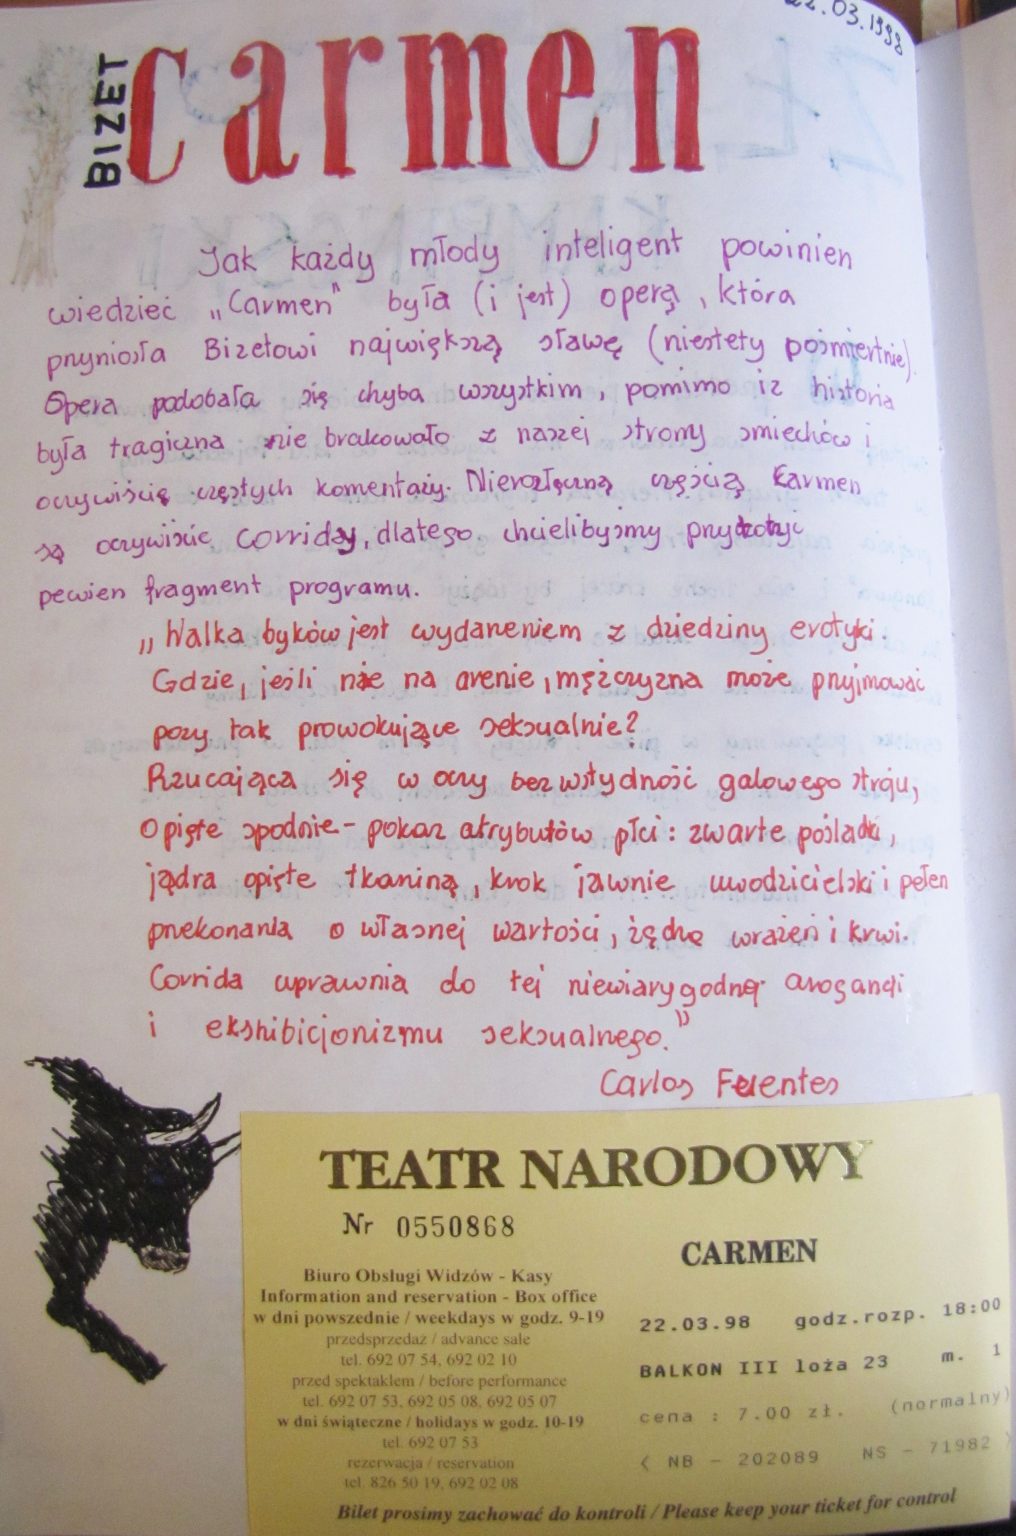 22.03.1998
BIZET
Carmen
Jak każdy młody inteligent powinien
wiedzieć „Carmen" była (i jest) operą, która
przyniosła Bizetowi największą sławę (niestety pośmiertnie).
Opera podobała się chyba wszystkim, pomimo iż historia
była tragiczna nie brakowało z naszej strony śmiechów i
oczywiście częstych komentaży. Nierozłączną częścią Carmen
są oczywiście corridy, dlatego chcielibyśmy przytoczyć
pewien fragment programu.
„Walka byków jest wydarzeniem z dziedziny erotyki.
Gdzie, jeśli nie na arenie, mężczyzna może przyjmować
pozy tak prowokujące seksualnie?
Rzucająca się w oczy bezwstydność galowego stroju,
opięte spodnie - pokaz atrybutów płci: zwarte pośladki,
jądra opięte tkaniną, krok jawnie uwodzicielski i pełen
przekonania o własnej wartości, żądzę wrażeń i krwi.
Corrida uprawnia do tej niewiarygodnej arogancji
i ekshibicjonizmu seksualnego."
Carlos Fuentes
TEATR NARODOWY
Nr 0550868
CARMEN
Biuro Obsługi Widzów - Kasy
Information and reservation - Box office
w dni powszednie / weekdays w godz. 9-19
przedsprzedaż / advance sale
tel. 692 07 54, 692 02 10
przed spektaklem / before performance
tel. 692 07 53, 692 05 08, 692 05 07
w dni świąteczne / holidays w godz. 10-19
tel. 692 07 53
rezerwacja / reservation
tel. 826 50 19, 692 02 08
22.03.98 godz.rozp. 18:00
BALKON III loża 23 m. 1
cena : 7.00 zł. (normalny)
< NB - 202089 NS - 71982 >
Bilet prosimy zachować do kontroli / Please keep your ticket for control